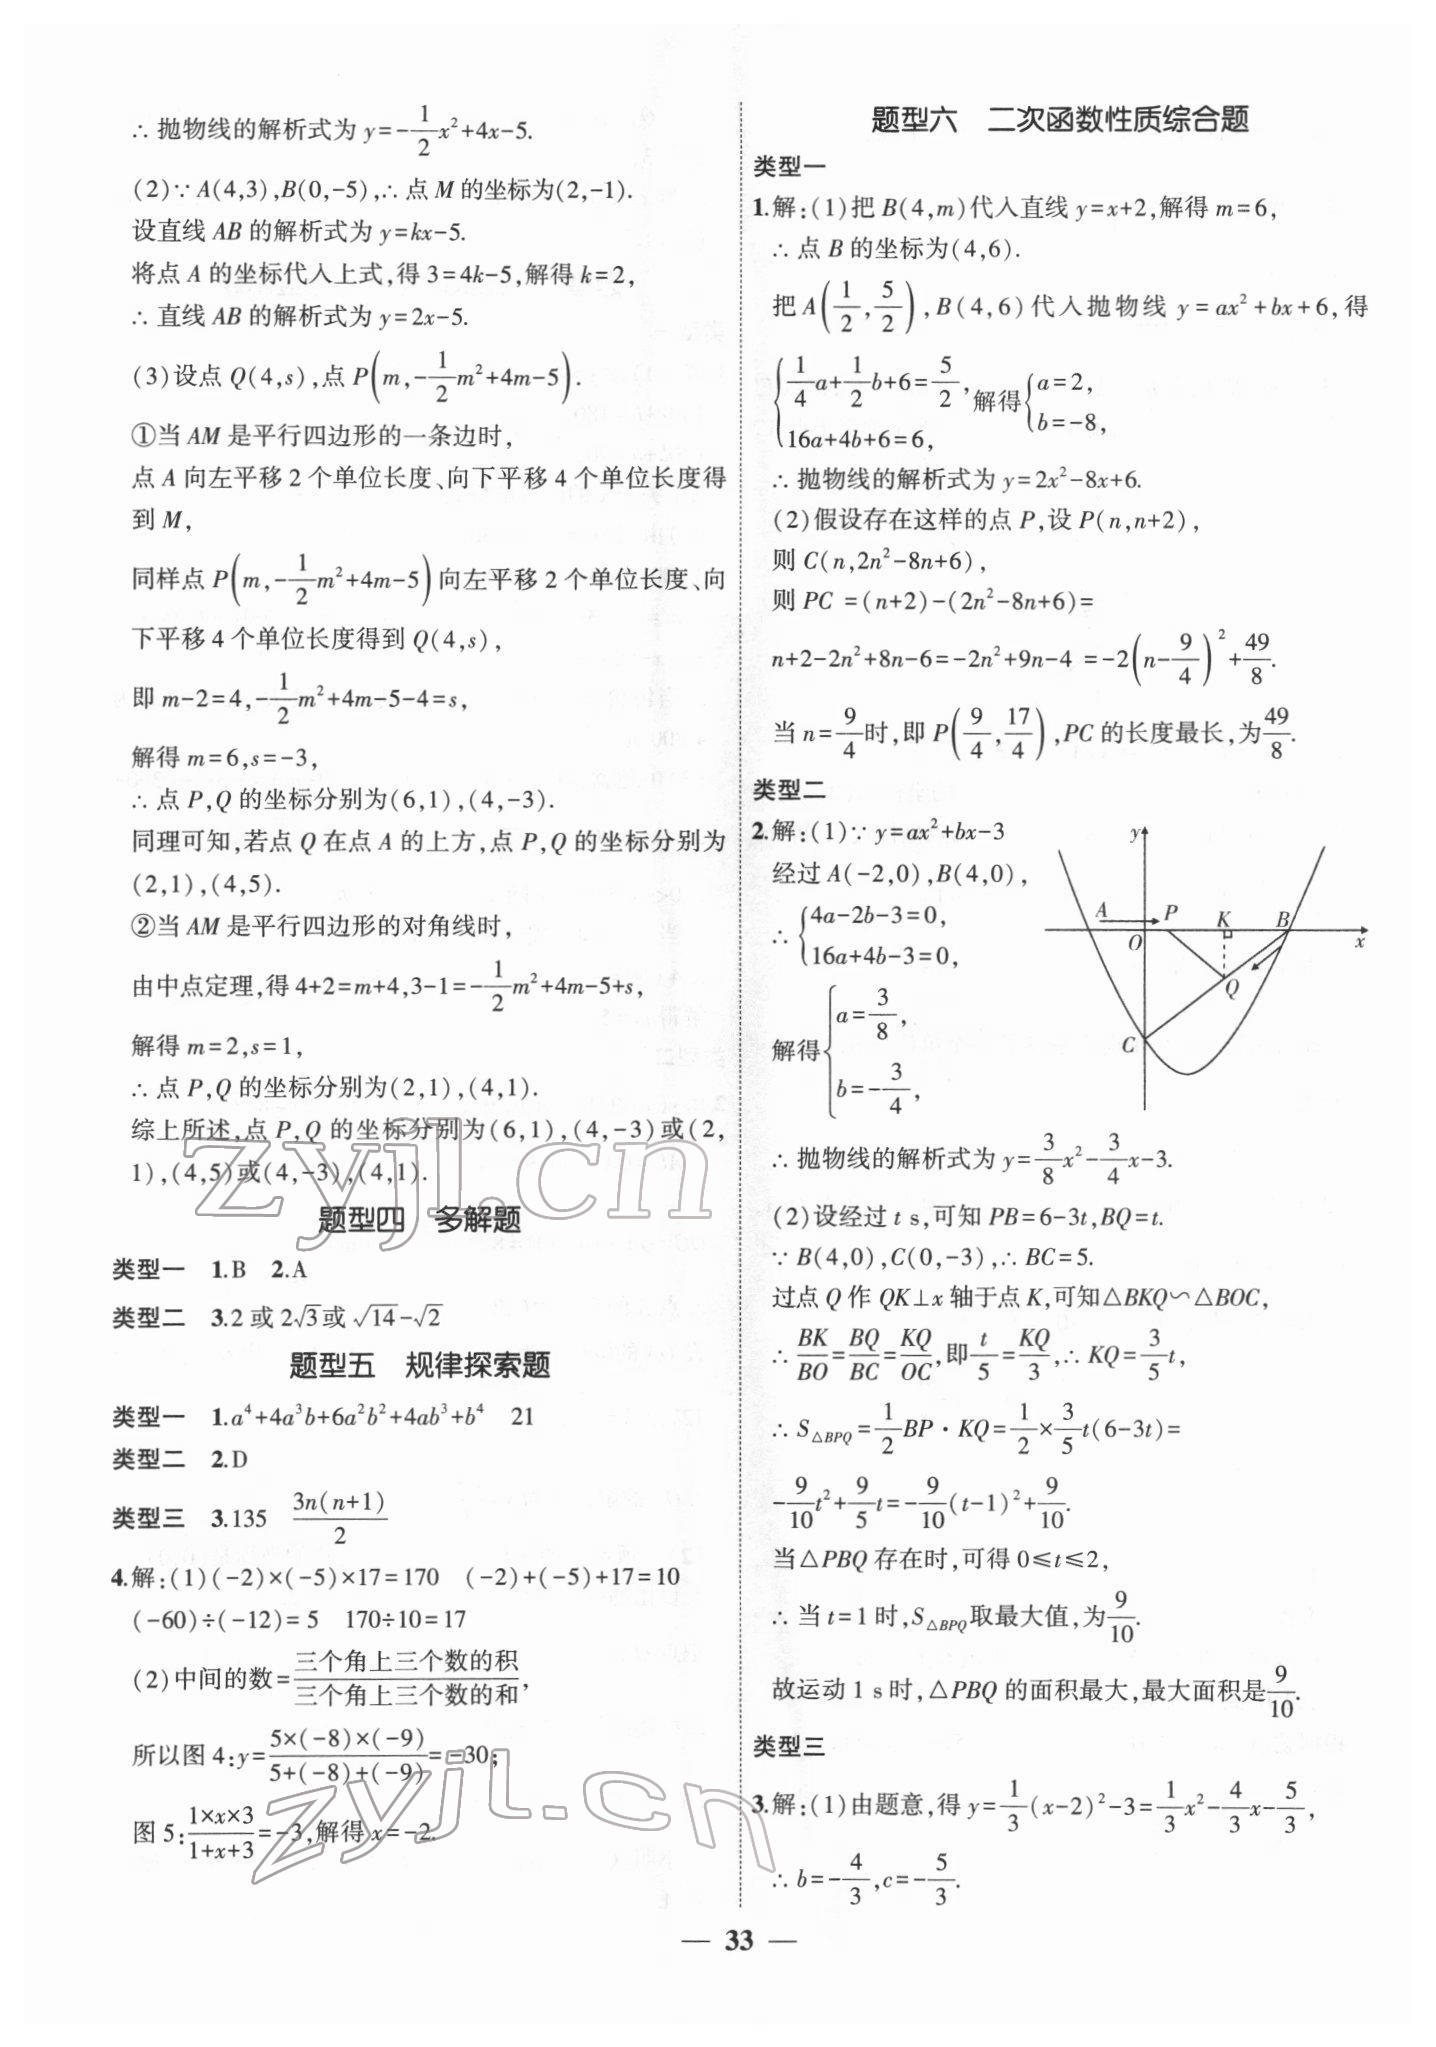 ∴ 抛物线的解析式为 y=-1/2x²+4x-5.
(2)∵ A(4,3),B(0,-5),∴ 点 M 的坐标为(2,-1).
设直线 AB 的解析式为 y=kx-5.
将点 A 的坐标代入上式,得 3=4k-5,解得 k=2,
∴ 直线 AB 的解析式为 y=2x-5.
(3)设点 Q(4,s),点 P(m,-1/2m²+4m-5).
①当 AM 是平行四边形的一条边时,
点 A 向左平移 2 个单位长度、向下平移 4 个单位长度得
到 M,
同样点 P(m,-1/2m²+4m-5)向左平移 2 个单位长度、向
下平移 4 个单位长度得到 Q(4,s),
即 m-2=4,-1/2m²+4m-5-4=s,
解得 m=6,s=-3,
∴ 点 P,Q 的坐标分别为(6,1),(4,-3).
同理可知,若点 Q 在点 A 的上方,点 P,Q 的坐标分别为
(2,1),(4,5).
②当 AM 是平行四边形的对角线时,
由中点定理,得 4+2=m+4,3-1=-1/2m²+4m-5+s,
解得 m=2,s=1,
∴ 点 P,Q 的坐标分别为(2,1),(4,1).
综上所述,点 P,Q 的坐标分别为(6,1),(4,-3)或(2,
1),(4,5)或(4,-3),(4,1).
题型四 多解题
类型一 1.B 2.A
类型二 3.2 或 2√3或 √14-√2
题型五 规律探索题
类型一 1.a⁴+4a³b+6a²b²+4ab³+b⁴ 21
类型二 2.D
类型三 3.135 3n(n+1)/2
4.解:(1)(-2)×(-5)×17=170 (-2)+(-5)+17=10
(-60)÷(-12)=5 170÷10=17
(2)中间的数=三个角上三个数的积/三个角上三个数的和,
所以图 4:y=5×(-8)×(-9)/5+(-8)+(-9)=-30;
图 5:1×x×3/1+x+3=-3,解得 x=-2.
题型六 二次函数性质综合题
类型一
1.解:(1)把 B(4,m)代入直线 y=x+2,解得 m=6,
∴ 点 B 的坐标为(4,6).
把 A(1/2,5/2),B(4,6)代入抛物线 y=ax²+bx+6,得
{1/4a+1/2b+6=5/2, 解得{a=2,
16a+4b+6=6, b=-8,
∴ 抛物线的解析式为 y=2x²-8x+6.
(2)假设存在这样的点 P,设 P(n,n+2),
则 C(n,2n²-8n+6),
则 PC=(n+2)-(2n²-8n+6)=
n+2-2n²+8n-6=-2n²+9n-4=-2(n-9/4)²+49/8.
当 n=9/4时,即 P(9/4,17/4),PC 的长度最长,为49/8.
类型二
2.解:(1)∵ y=ax²+bx-3
经过 A(-2,0),B(4,0),
∴ {4a-2b-3=0,
16a+4b-3=0,
解得{a=3/8,
b=-3/4,
y
A P K B
O x
Q
C
∴ 抛物线的解析式为 y=3/8x²-3/4x-3.
(2)设经过 t s,可知 PB=6-3t,BQ=t.
∵ B(4,0),C(0,-3),∴ BC=5.
过点 Q 作 QK⊥x 轴于点 K,可知△BKQ∽△BOC,
∴ BK/BO=BQ/BC=KQ/OC,即t/5=KQ/3,∴ KQ=3/5t,
∴ S△BPQ=1/2BP·KQ=1/2×3/5t(6-3t)=
-9/10t²+9/5t=-9/10(t-1)²+9/10.
当△PBQ 存在时,可得 0≤t≤2,
∴ 当 t=1 时,S△BPQ取最大值,为9/10.
故运动 1 s 时,△PBQ 的面积最大,最大面积是9/10.
类型三
3.解:(1)由题意,得 y=1/3(x-2)²-3=1/3x²-4/3x-5/3,
∴ b=-4/3,c=-5/3.
— 33 —
zyjl.cn
zyjl.cn